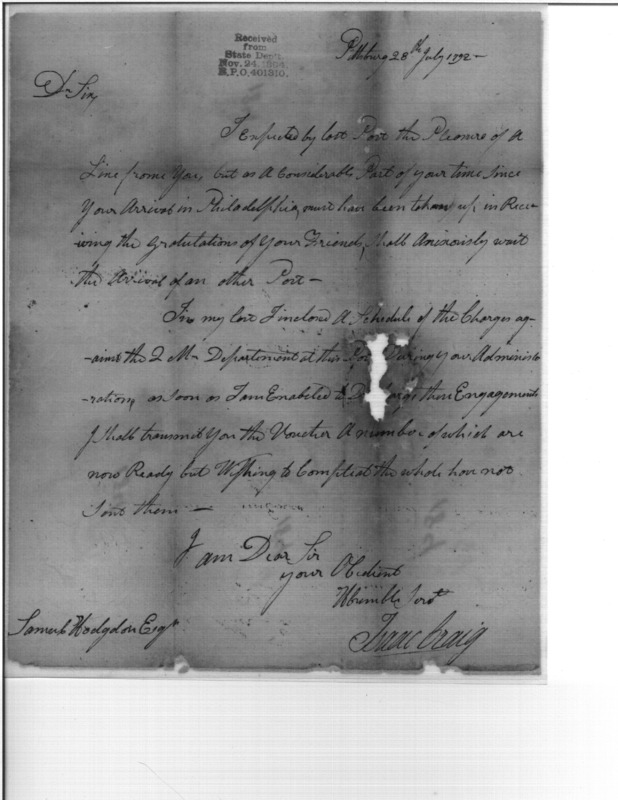 Received
from
State Dep't.
Nov. 24, 1904.
R.P.O. 401310.
Pittsburg 28th July 1792 -
Dr Sir,
I Expected by last Post the Pleasure of A
Line from You, but as A Considerable Part of your time Since
Your Arrival in Philadelphia, must have been taken up in Rece-
iving the gratulations of Your Friends, Shall Anxiously wait
the Arrival of an other Post -
In my last I inclosed A Schedule of the Charges ag-
-ainst the Q M- Department at this Po During your Adminis-
-ration, as soon as I am Enabled to D these Engagements
I Shall transmit You the Voucher A number of which are
now Ready but Wishing to Compleat the whole have not
Sent them -
I am Dear Sir
your Obedient
Humble Servt
Isaac Craig
Samuel Hodgdon Esqr